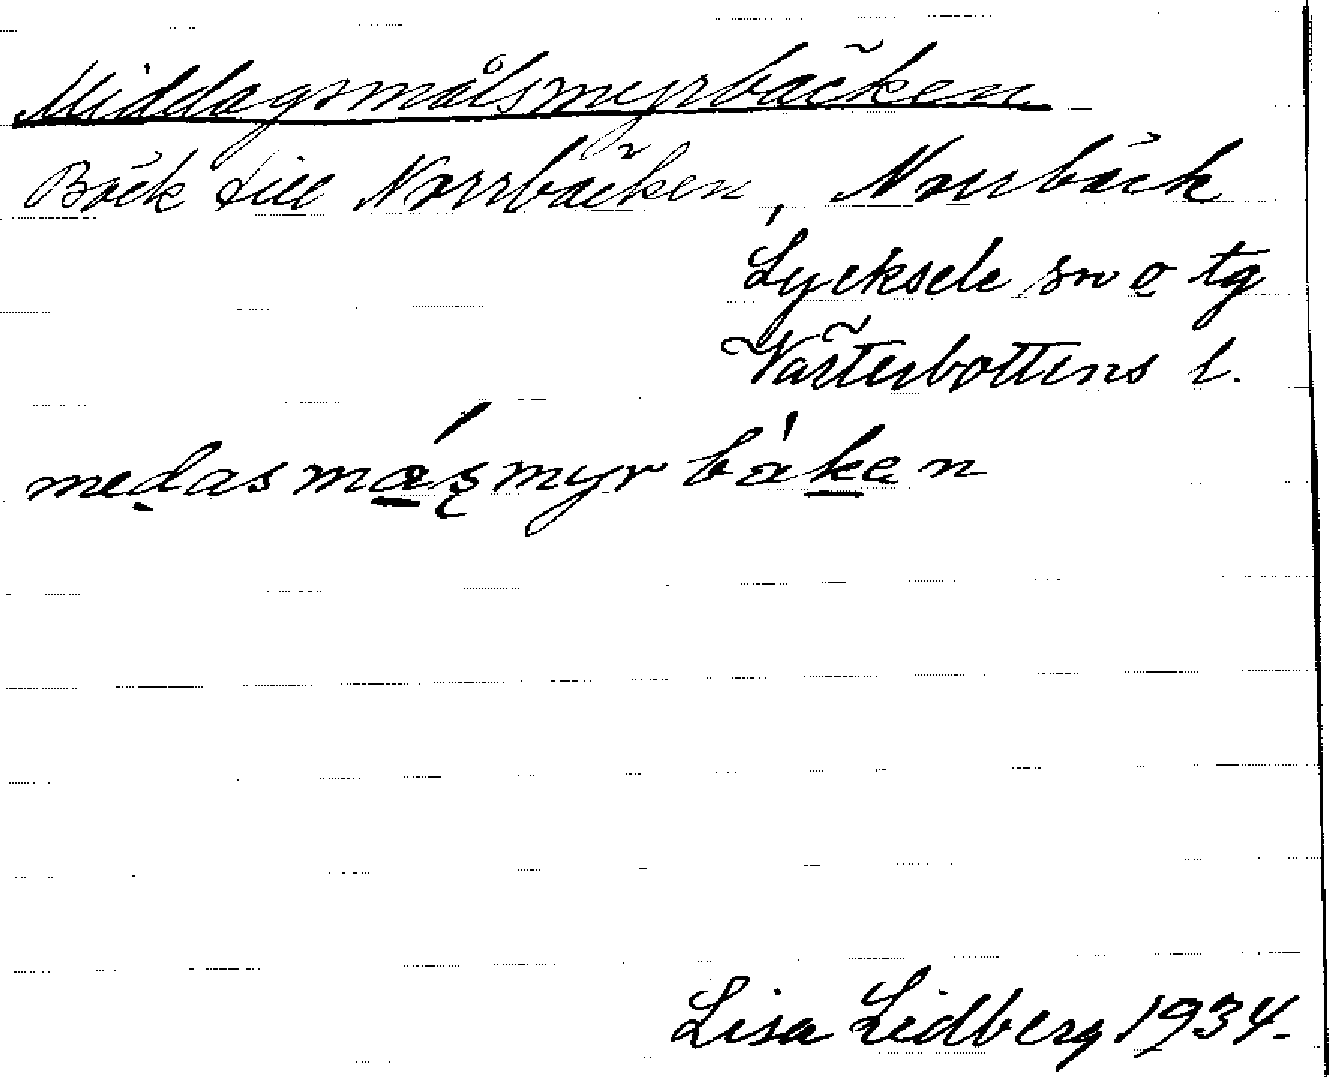 Middagsmålsmyrbäcken
Bäck till Norrbäcken, Norrbäck
Lycksele sn o tg
Västerbottens l.
medasmásmyrbäken
Lisa Lidberg 1934.